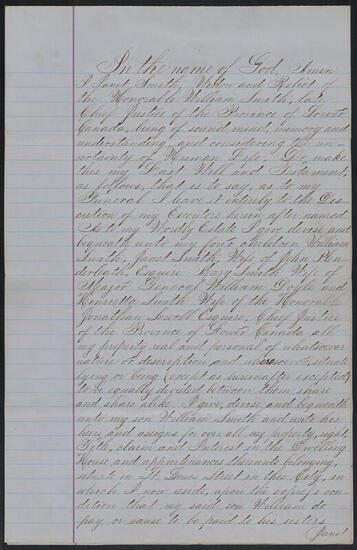 In the name of God, Amen
I Janet Smith, Widow and Relict of
the Honorable William Smith, late
Chief Justice of the Province of Lower
Canada, being of sound mind, memory and
understanding, and considering the un-
certainty of Human Life. Do, make
this my Last Will and Testament,
as follows, that is to say, as to my
Funeral I leave it intirely to the Dis-
cretion of my Executors herein after named.
As to my Wordly Estate I give devise and
bequeath unto my four children William
Smith, Janet Smith, Wife of John Plen-
derleath, Esquire Mary Smith Wife of
Major General William Doyle and
Henrietta Smith Wife of the Honorable
Jonathan Sewell Esquire, Chief Justice
of the Province of Lower Canada all
my property real and personal of whatsoever
nature or discreption, and wheresoever, situate
lying or being (except as hereinafter excepted)
to be equally divided between them share
and share alike. I give, devise and bequeath
unto my son William Smith and unto his
heirs and assigns for ever all my property, right,
Title, claim and Interest in the Dwelling
House and appurtenances thereunto belonging,
situate in St. Louis Street in this City, in
which I now reside, upon the express con-
dition that my said son William do
pay or cause to be paid to his sisters
Janet